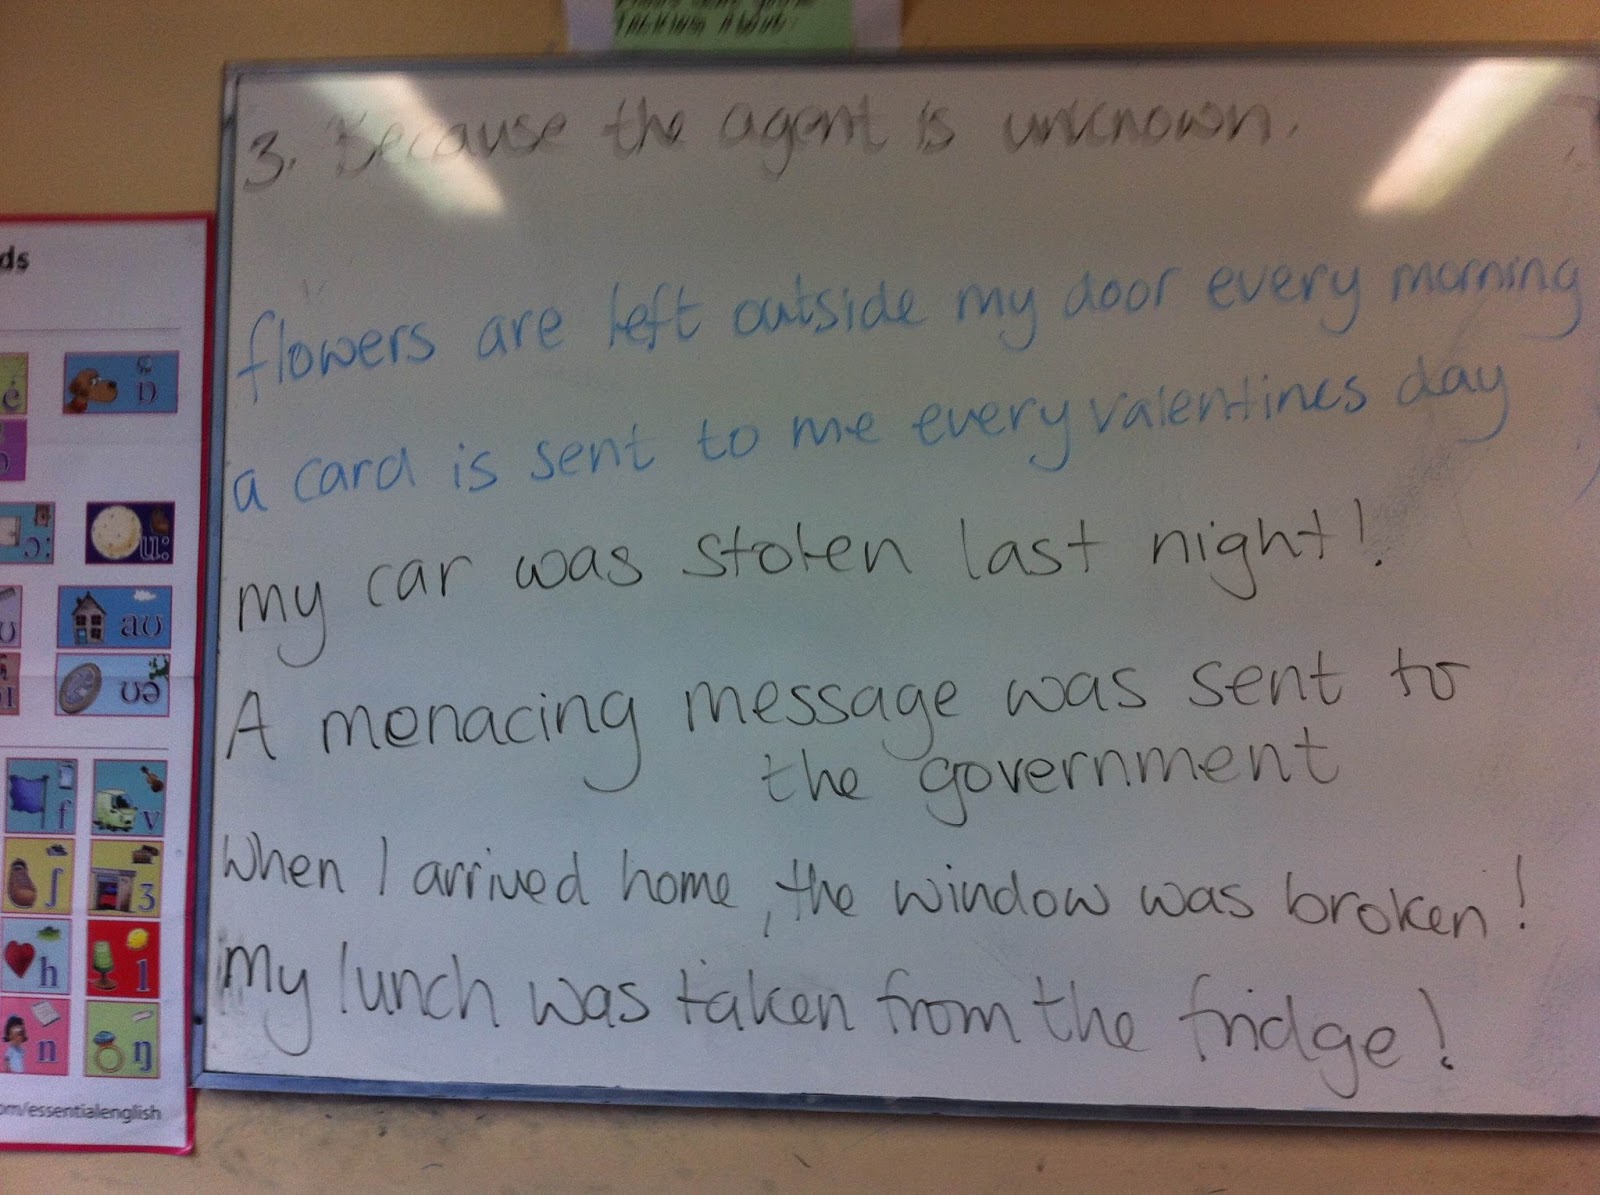 THINKING ABOUT:
3. Because the agent is unknown.
flowers are left outside my door every morning
a card is sent to me every valentines day
my car was stolen last night!
A menacing message was sent to
the government
When I arrived home, the window was broken!
My lunch was taken from the fridge!
ds
é
ɒ
ɔ:
u:
ʊ
aʊ
ʊə
f
v
ʃ
ʒ
h
l
n
ŋ
om/essentialenglish